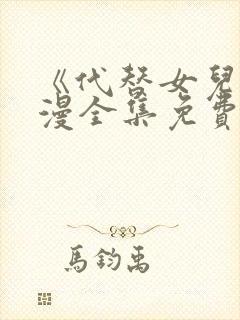 《代替女兒
漫全集免費
馬鈞禹